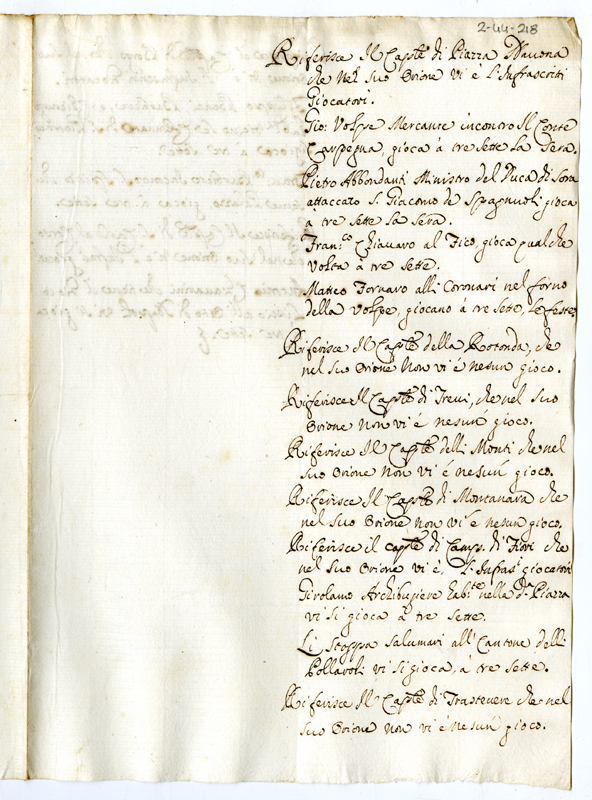 2-44-218
Riferisce Il Cap.le di Piazza Navona
che Nel suo Rione vi è l'Infrascritti
Giocatori.
Gio: Volpe Mercante incontro Il Conte
Carpegna, gioca à tre sette La sera.
Pietro Abbondanti Ministro del Duca di Sora
attaccato S. Giacomo de Spagnuoli gioca
à tre sette La sera.
Fran.co Chiavaro al Fico, gioca qualche
volta à tre sette.
Matteo Fornaro alli Coronari nel forno
della Volpe, giocano à tre sette, Le feste,
Riferisce Il Cap.le della Rotonda, che
nel suo Rione Non vi è nesun gioco.
Riferisce Il Cap.le di Trevi, che nel suo
Rione Non vi è nesun gioco.
Riferisce Il Cap.le delli Monti che nel
suo Rione Non vi è nesun gioco.
Riferisce Il Cap.le di Montanara che
nel suo Rione, non vi è nesun gioco.
Riferisce il Cap.le di Camp. di Fiori che
nel suo Rione vi è, l'Infras.i giocatori
Girolamo Archibugiere hab.te nella d.a Piazza
vi si gioca à tre sette.
Li Stoppa salumari all'Cantone delli
Pollaroli vi si gioca, à tre sette.
Riferisce Il Cap.le di Trastevere che nel
suo Rione non vi è nesun gioco.